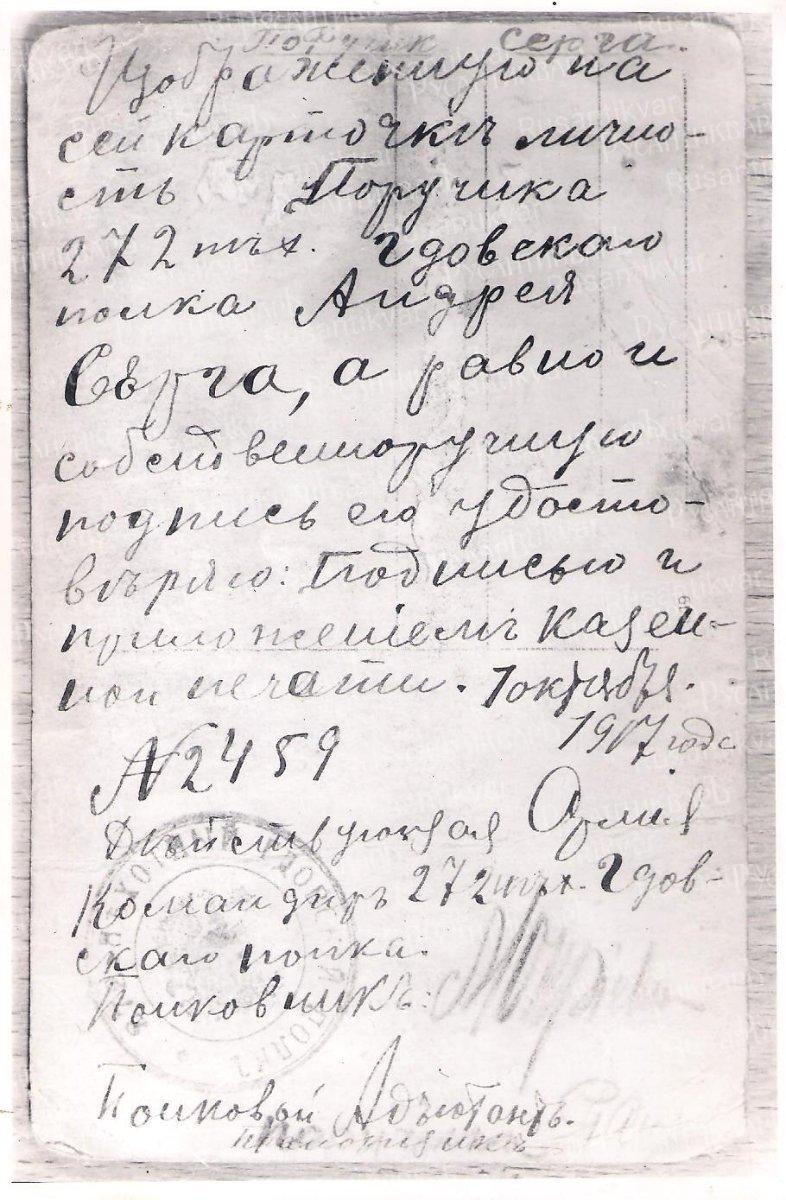 Поручик Серга.
Изображенную на
сей карточкѣ лично-
сть Поручика
272 пѣх. Гдовскаго
полка Андрея
Сѣрга, а равно и
собственноручную
подпись его удосто-
вѣряю: Подписью и
приложенiемъ казен-
ной печати. 1 октября.
1917 года
№ 2459
Действующая Армiя
Командиръ 272 пѣх. Гдов-
скаго полка.
Полковникъ:
Полковой Адъютантъ.